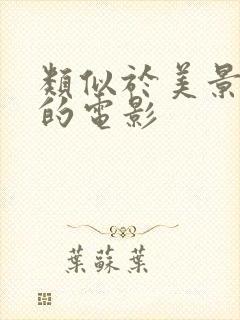 類似於美景
的電影
葉蘇葉